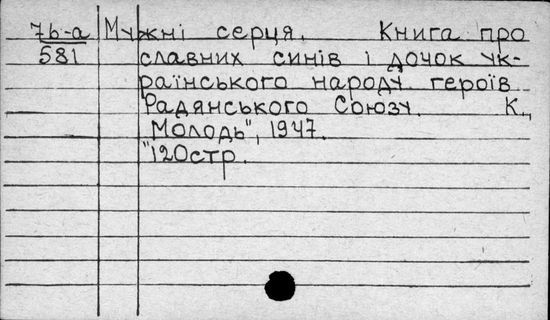 7б-а Мужні серця. Книга про
581 славних синів і дочок ук-
раїнського народу героїв
Радянського Союзу. К.,
"Молодь", 1947.
120стр.